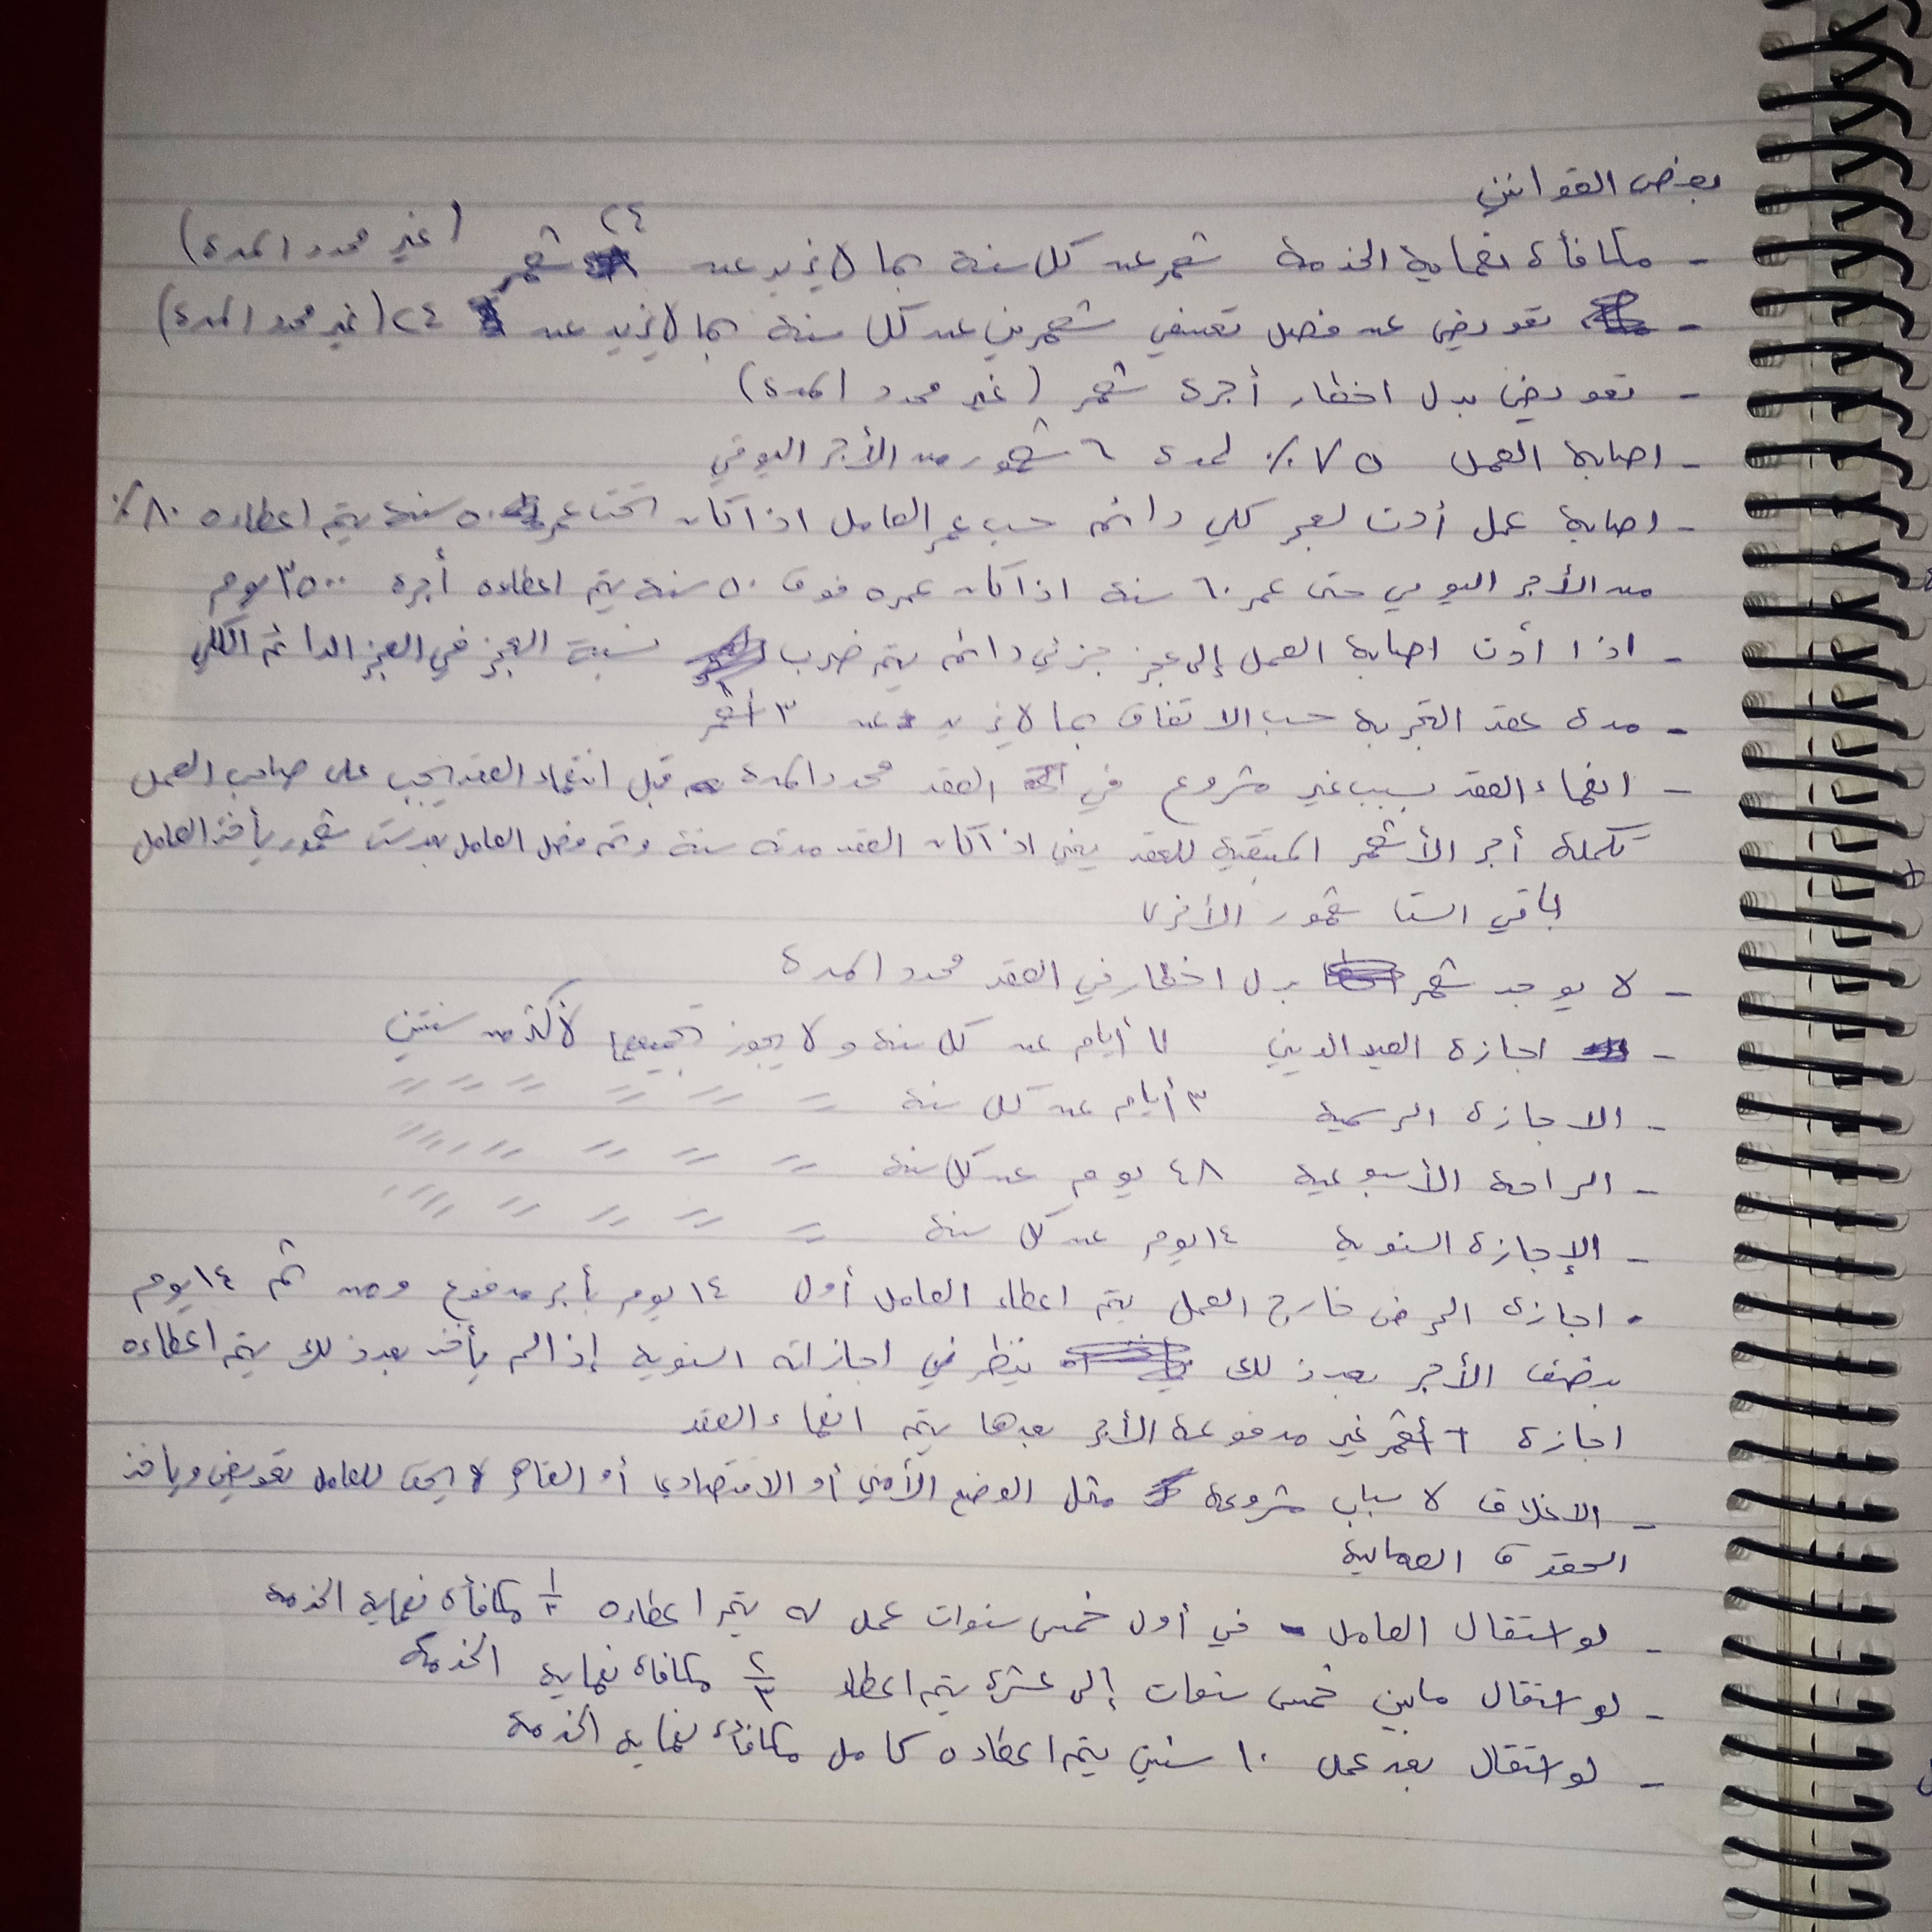 بعض القوانين
- مكافأة نهاية الخدمة شهر عن كل سنة بما لا يزيد عن ٢٤ شهر (غير محدد المدة)
- تعويض عن فصل تعسفي شهرين عن كل سنة بما لا يزيد عن ٢٤ (غير محدد المدة)
- تعويض بدل اخطار أجرة شهر (غير محدد المدة)
- اصابة العمل ٧٥٪ لمدة ٦ شهور من الأجر اليومي
- اصابة عمل أدت لعجز كلي دائم حسب عمر العامل اذا كان تحت عمر ٥٠ سنة يتم اعطاءه ٨٠٪
من الأجر اليومي حتى عمر ٦٠ سنة اذا كان عمره فوق ٥٠ سنة يتم اعطاءه أجرة ٣٥٠٠ يوم
- اذا أدت اصابة العمل إلى عجز جزئي دائم يتم ضرب نسبة العجز في العجز الدائم الكلي
- مدة عقد التجربة حسب الاتفاق بما لا يزيد عن ٣ أشهر
- انهاء العقد بسبب غير مشروع في العقد محدد المدة قبل انتهاء العقد يجب على صاحب العمل
تكملة أجر الأشهر المتبقية للعقد يعني اذا كان العقد مدته سنة وتم فصل العامل بعد ست شهور يأخذ العامل
باقي الستا شهور الأخرى
- لا يوجد شهر بدل اخطار في العقد محدد المدة
- اجازة العيد الديني ٧ أيام عن كل سنة و لا يجوز تجميعها لأكثر من سنتين
- الاجازة الرسمية ٣ أيام عن كل سنة " " " " " "
- الراحة الأسبوعية ٤٨ يوم عن كل سنة " " " " " "
- الإجازة السنوية ١٤ يوم عن كل سنة " " " " " "
- اجازة المرض خارج العمل يتم اعطاء العامل أول ١٤ يوم بأجر مدفوع ومن ثم ١٤ يوم
بنصف الأجر بعد ذلك ينظر في اجازاته السنوية إذا لم يأخذ بعد ذلك يتم اعطاءه
اجازة ٦ أشهر غير مدفوعة الأجر بعدها يتم انهاء العقد
- الاغلاق لاسباب مشروعة مثل الوضع الأمني أو الاقتصادي أو القاهر لا يحق للعامل تعويض ويأخذ
الحقوق العمالية
- لو استقال العامل في أول خمس سنوات عمل له يتم اعطاءه ١/٣ مكافأة نهاية الخدمة
- لو استقال مابين خمس سنوات إلى عشرة يتم اعطاء ٢/٣ مكافأة نهاية الخدمة
- لو استقال بعد عمل ١٠ سنين يتم اعطاءه كامل مكافأة نهاية الخدمة